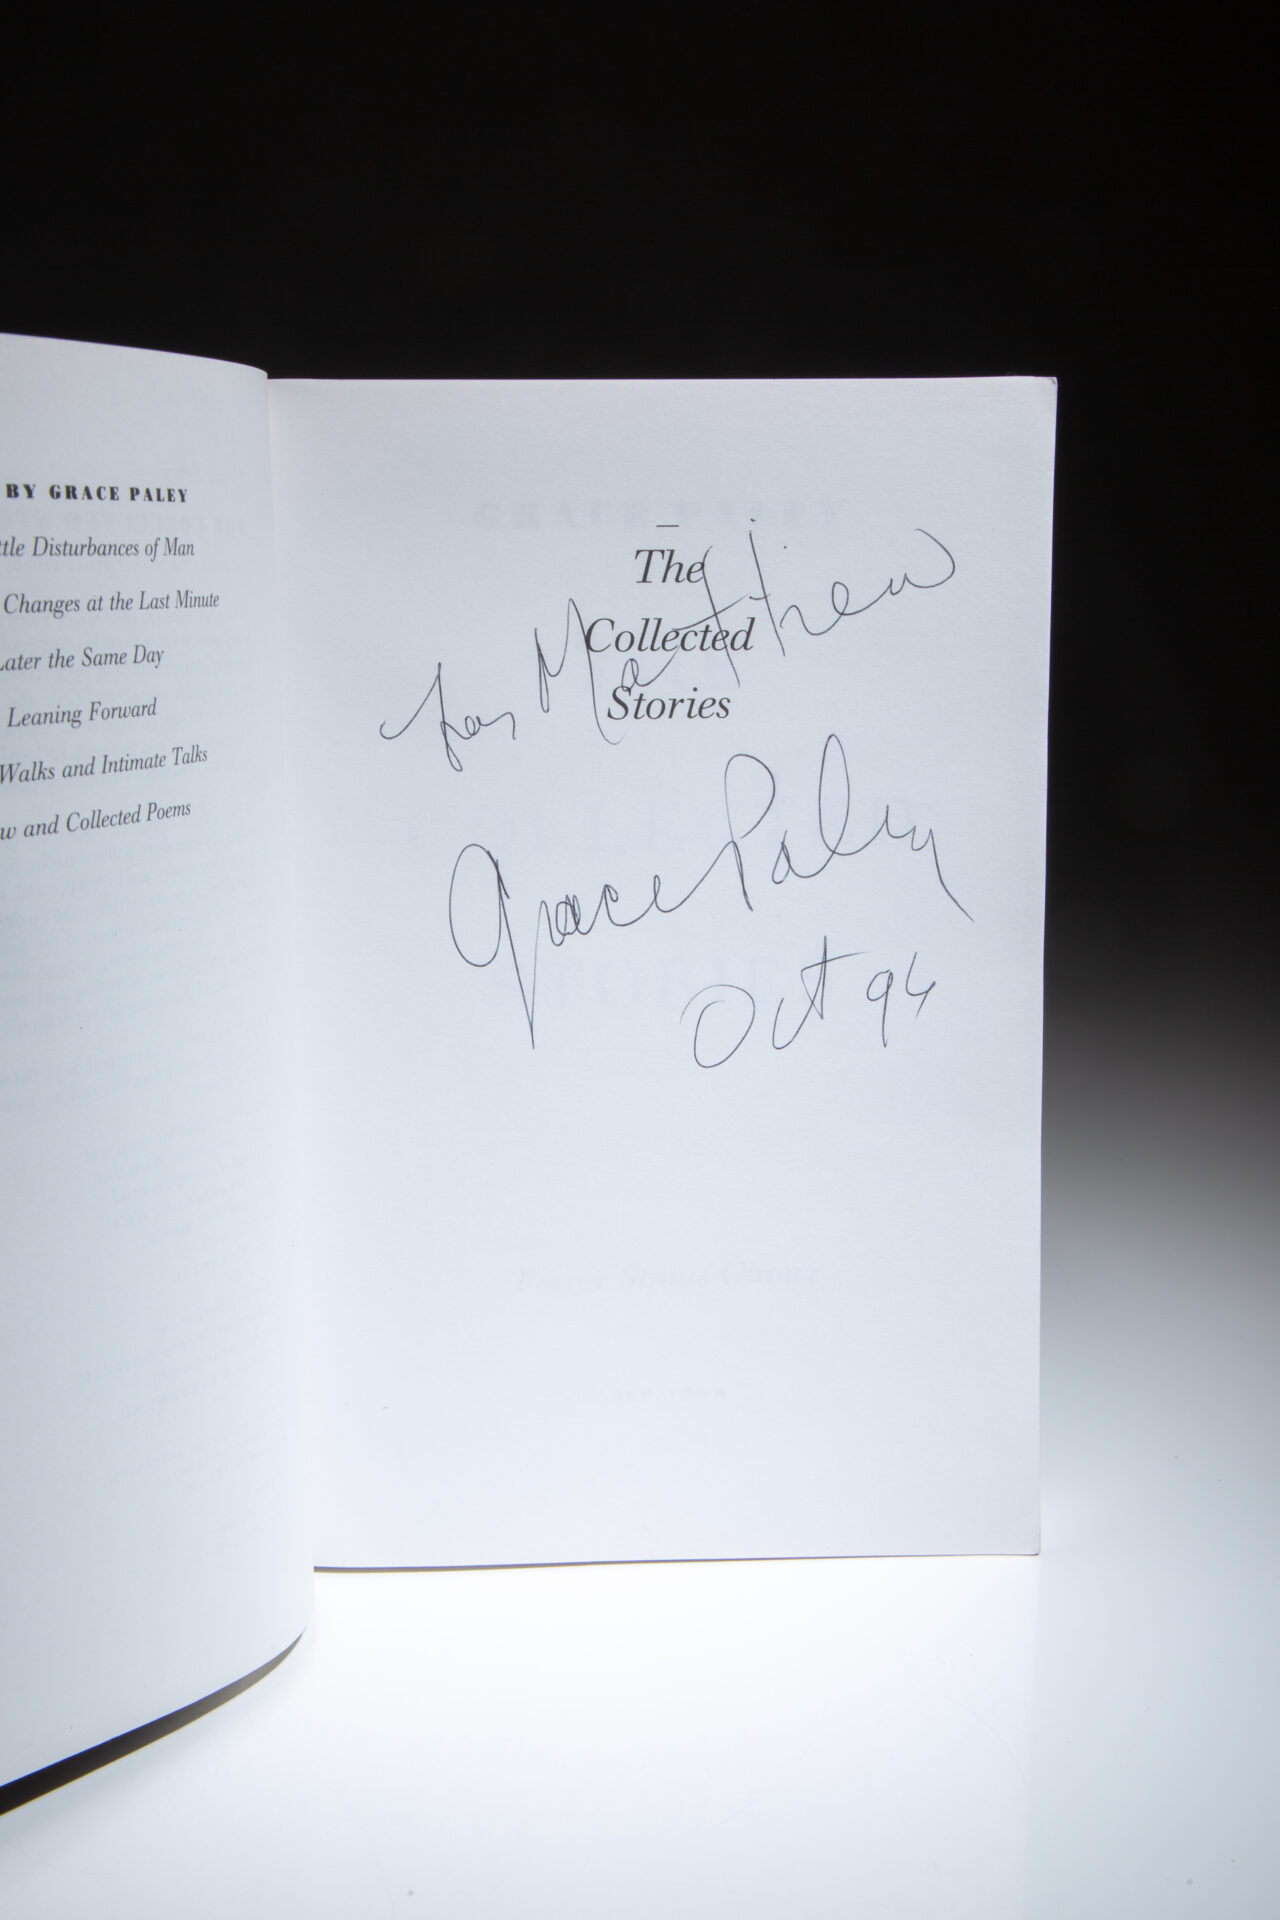 BY GRACE PALEY
ttle Disturbances of Man
Changes at the Last Minute
Later the Same Day
Leaning Forward
Walks and Intimate Talks
w and Collected Poems
The
Collected
Stories
for Matthew
Grace Paley
Oct 94